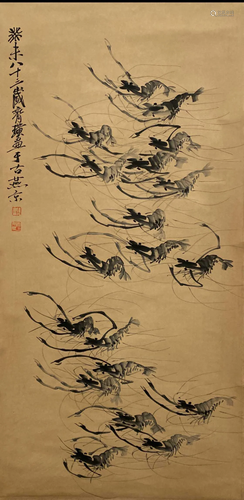 癸未八十三歲齊璜畫
于古燕京